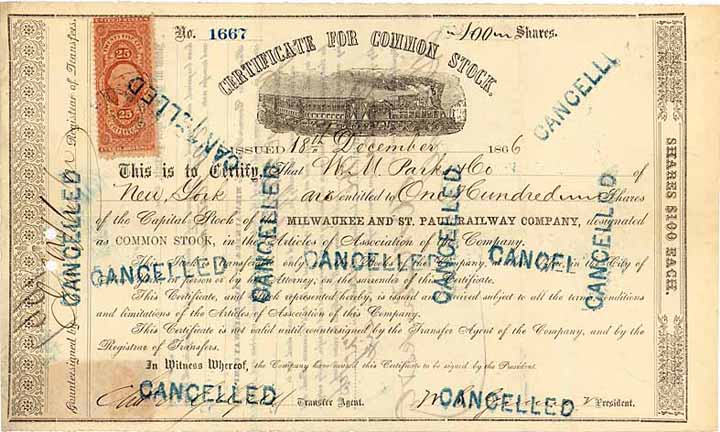 No. 1667
100 Shares.
CERTIFICATE FOR COMMON STOCK.
25 25
25 25
ISSUED 18th December 1866
This is to Certify, That W & U Parks Co of
New York are entitled to One Hundred Shares
of the Capital Stock of the MILWAUKEE AND ST. PAUL RAILWAY COMPANY, designated
as COMMON STOCK, in the Articles of Association of the Company.
This Stock is transferable only at the Company, at the in the City of
in person or by Attorney, on the surrender of this Certificate.
This Certificate, and Stock represented hereby, is issued and received subject to all the terms, conditions
and limitations of the Articles of Association of this Company.
This Certificate is not valid until countersigned by the Transfer Agent of the Company, and by the
Registrar of Transfers.
In Witness Whereof, the Company have caused this Certificate to be signed by the President.
Transfer Agent.
President.
Countersigned by
Registrar of Transfers.
SHARES $100 EACH.
CANCELLED
CANCELLED
CANCELLED
CANCELLED
CANCELLED
CANCELLED
CANCELLED
CANCELLED
CANCEL
CANCELLED
CANCELLED
CANCELLED